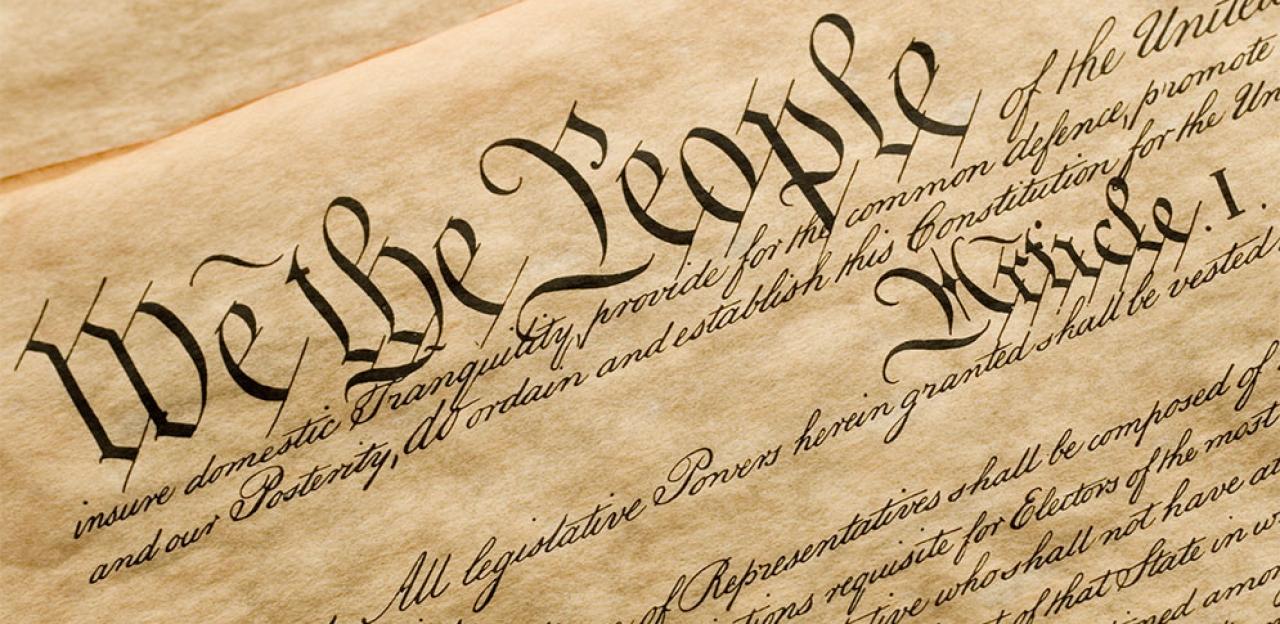 We the People of the United
insure domestic Tranquility, provide for the common defence, promote
and our Posterity, do ordain and establish this Constitution for the Un
Article. I.
All legislative Powers herein granted shall be vested
of Representatives shall be composed of
tions requisite for Electors of the most
tive who shall not have at
of that State in w
ned among